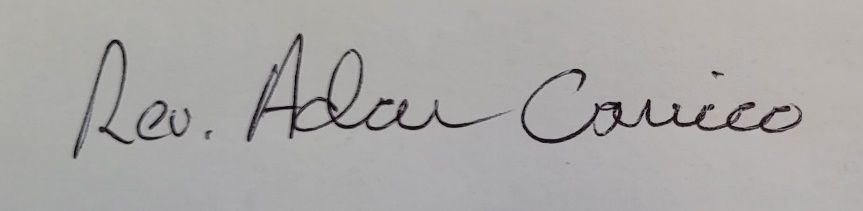 Rev. Adam Carrico